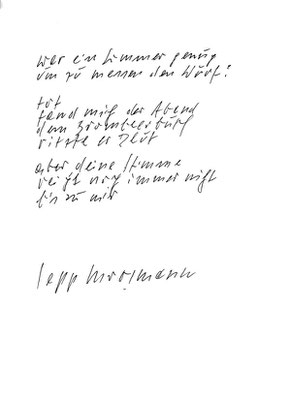 war ein Zimmer genug
um zu messen den Wurf?
tot
fand mich der Abend
dem Brombeerbusch
ritzte er Blut
aber deine Stimme
reicht noch immer nicht
bis zu mir
Sepp